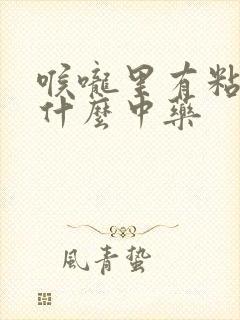 喉嚨里有粘
什麼中藥
風青蟄